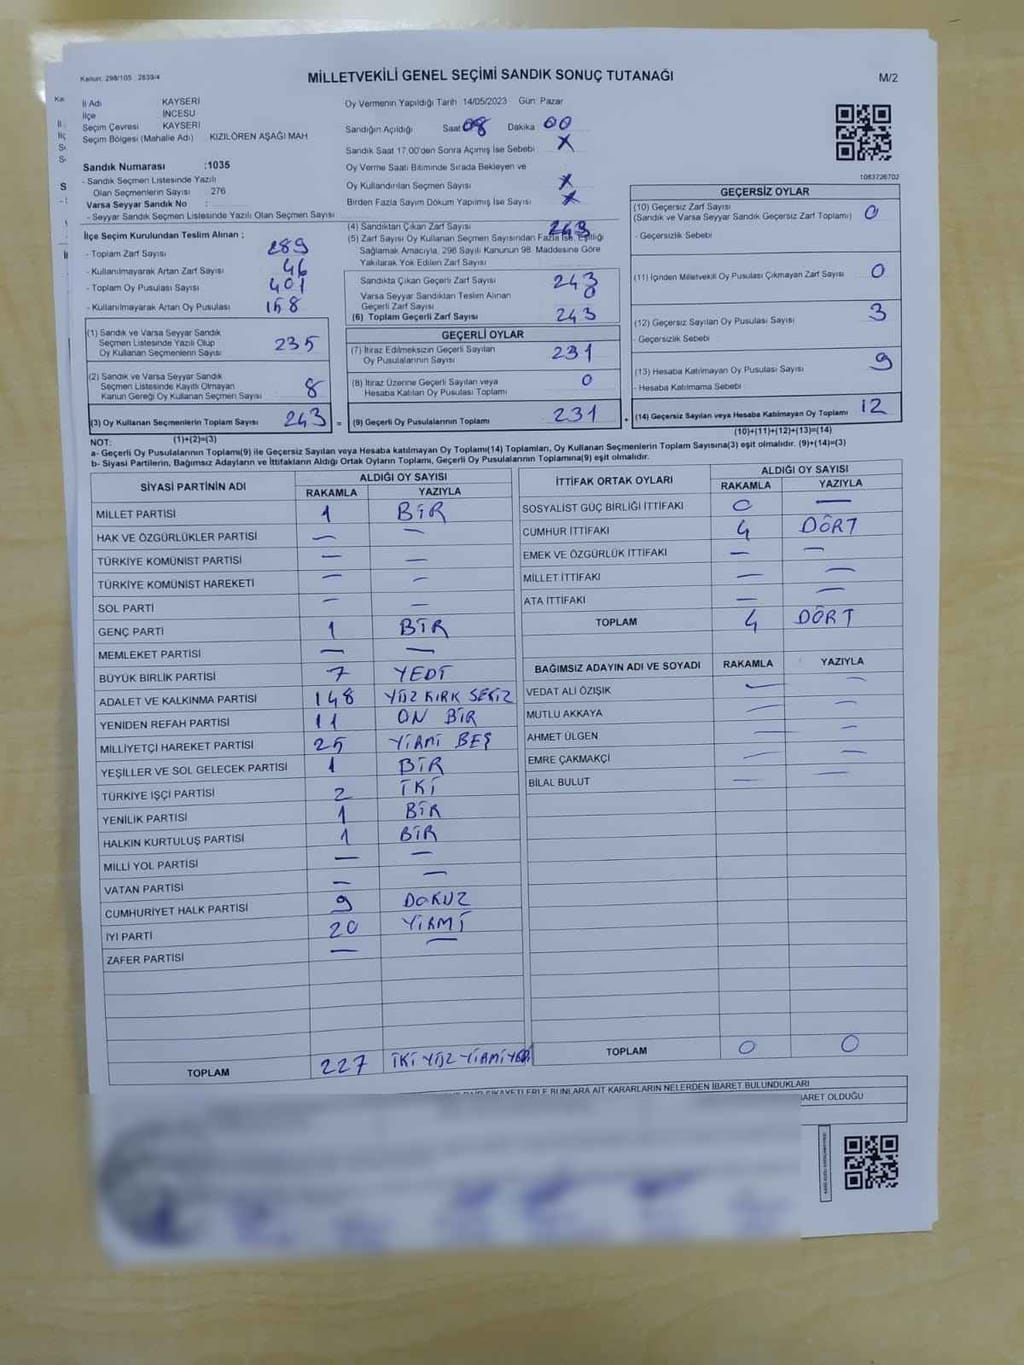 Kanun: 298/105 2839/4
MİLLETVEKİLİ GENEL SEÇİMİ SANDIK SONUÇ TUTANAĞI
M/2
İl Adı KAYSERİ
İlçe İNCESU
Seçim Çevresi KAYSERİ
Seçim Bölgesi (Mahalle Adı) KIZILÖREN AŞAĞI MAH
Sandık Numarası :1035
- Sandık Seçmen Listesinde Yazılı
Olan Seçmenlerin Sayısı : 276
Varsa Seyyar Sandık No :
- Seyyar Sandık Seçmen Listesinde Yazılı Olan Seçmen Sayısı
Oy Vermenin Yapıldığı Tarih 14/05/2023 Gün: Pazar
Sandığın Açıldığı Saat 08 Dakika 00
Sandık Saat 17.00'den Sonra Açımış İse Sebebi X
Oy Verme Saati Bitiminde Sırada Bekleyen ve
Oy Kullandırılan Seçmen Sayısı X
Birden Fazla Sayım Döküm Yapılmış İse Sayısı X
1083726702
İlçe Seçim Kurulundan Teslim Alınan ;
- Toplam Zarf Sayısı 289
- Kullanılmayarak Artan Zarf Sayısı 46
- Toplam Oy Pusulası Sayısı 401
- Kullanılmayarak Artan Oy Pusulası 158
(1) Sandık ve Varsa Seyyar Sandık
Seçmen Listesinde Yazılı Olup
Oy Kullanan Seçmenlerin Sayısı 235
(2) Sandık ve Varsa Seyyar Sandık
Seçmen Listesinde Kayıtlı Olmayan
Kanun Gereği Oy Kullanan Seçmen Sayısı 8
(3) Oy Kullanan Seçmenlerin Toplam Sayısı 243 =
(1)+(2)=(3)
(4) Sandıktan Çıkan Zarf Sayısı 243
(5) Zarf Sayısı Oy Kullanan Seçmen Sayısından Fazla İse, Eşitliği
Sağlamak Amacıyla, 298 Sayılı Kanunun 98. Maddesine Göre
Yakılarak Yok Edilen Zarf Sayısı
Sandıkta Çıkan Geçerli Zarf Sayısı 243
Varsa Seyyar Sandıktan Teslim Alınan
Geçerli Zarf Sayısı 0
(6) Toplam Geçerli Zarf Sayısı 243
GEÇERLİ OYLAR
(7) İtiraz Edilmeksizin Geçerli Sayılan
Oy Pusulalarının Sayısı 231
(8) İtiraz Üzerine Geçerli Sayılan veya
Hesaba Katılan Oy Pusulası Toplamı 0
(9) Geçerli Oy Pusulalarının Toplamı 231 +
GEÇERSİZ OYLAR
(10) Geçersiz Zarf Sayısı
(Sandık ve Varsa Seyyar Sandık Geçersiz Zarf Toplamı) 0
- Geçersizlik Sebebi
(11) İçinden Milletvekili Oy Pusulası Çıkmayan Zarf Sayısı 0
(12) Geçersiz Sayılan Oy Pusulası Sayısı 3
- Geçersizlik Sebebi
(13) Hesaba Katılmayan Oy Pusulası Sayısı 9
- Hesaba Katılmama Sebebi
(14) Geçersiz Sayılan veya Hesaba Katılmayan Oy Toplamı 12
(10)+(11)+(12)+(13)=(14)
NOT:
a- Geçerli Oy Pusulalarının Toplamı(9) ile Geçersiz Sayılan veya Hesaba katılmayan Oy Toplamı(14) Toplamları, Oy Kullanan Seçmenlerin Toplam Sayısına(3) eşit olmalıdır. (9)+(14)=(3)
b- Siyasi Partilerin, Bağımsız Adayların ve İttifakların Aldığı Ortak Oyların Toplamı, Geçerli Oy Pusulalarının Toplamına(9) eşit olmalıdır.
SİYASİ PARTİNİN ADI
ALDIĞI OY SAYISI
RAKAMLA YAZIYLA
MİLLET PARTİSİ 1 BİR
HAK VE ÖZGÜRLÜKLER PARTİSİ — —
TÜRKİYE KOMÜNİST PARTİSİ — —
TÜRKİYE KOMÜNİST HAREKETİ — —
SOL PARTİ — —
GENÇ PARTİ 1 BİR
MEMLEKET PARTİSİ — —
BÜYÜK BİRLİK PARTİSİ 7 YEDİ
ADALET VE KALKINMA PARTİSİ 148 YÜZ KIRK SEKİZ
YENİDEN REFAH PARTİSİ 11 ON BİR
MİLLİYETÇİ HAREKET PARTİSİ 25 YİRMİ BEŞ
YEŞİLLER VE SOL GELECEK PARTİSİ 1 BİR
TÜRKİYE İŞÇİ PARTİSİ 2 İKİ
YENİLİK PARTİSİ 1 BİR
HALKIN KURTULUŞ PARTİSİ 1 BİR
MİLLİ YOL PARTİSİ — —
VATAN PARTİSİ — —
CUMHURİYET HALK PARTİSİ 9 DOKUZ
İYİ PARTİ 20 YİRMİ
ZAFER PARTİSİ — —
TOPLAM 227 İKİ YÜZ YİRMİ YEDİ
İTTİFAK ORTAK OYLARI
ALDIĞI OY SAYISI
RAKAMLA YAZIYLA
SOSYALİST GÜÇ BİRLİĞİ İTTİFAKI 0 —
CUMHUR İTTİFAKI 4 DÖRT
EMEK VE ÖZGÜRLÜK İTTİFAKI — —
MİLLET İTTİFAKI — —
ATA İTTİFAKI — —
TOPLAM 4 DÖRT
BAĞIMSIZ ADAYIN ADI VE SOYADI RAKAMLA YAZIYLA
VEDAT ALİ ÖZIŞIK — —
MUTLU AKKAYA — —
AHMET ÜLGEN — —
EMRE ÇAKMAKÇI — —
BİLAL BULUT — —
TOPLAM 0 0
BUNLARA AİT KARARLARIN NELERDEN İBARET BULUNDUKLARI
OLDUĞU